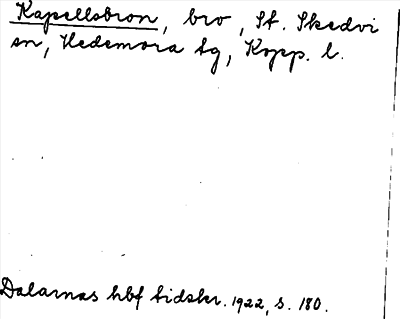 Kapellsbron, bro, St. Skedvi
sn, Hedemora tg, Kopp. l.
Dalarnas hbf tidskr. 1922, s. 180.